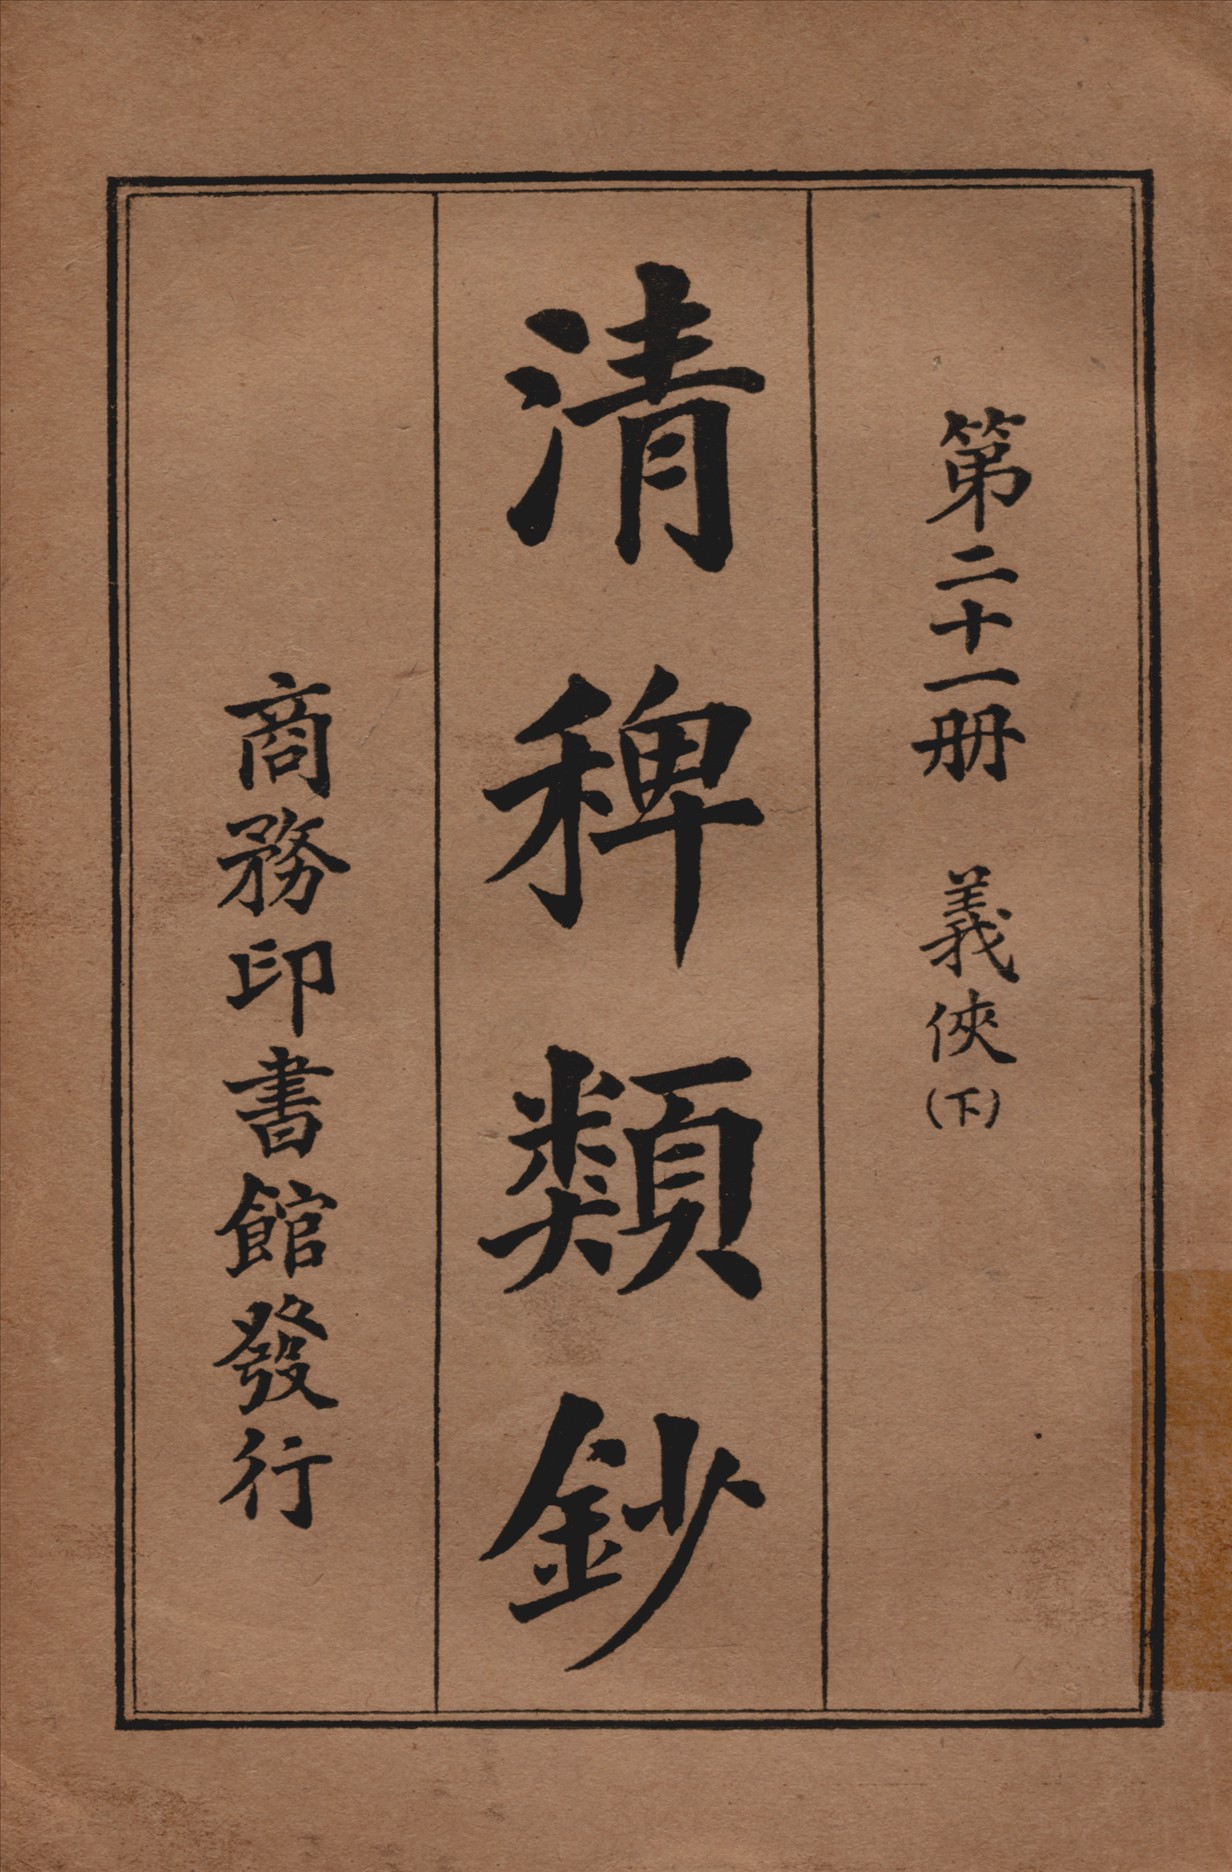 第二十一册 義俠(下)
清稗類鈔
商務印書館發行